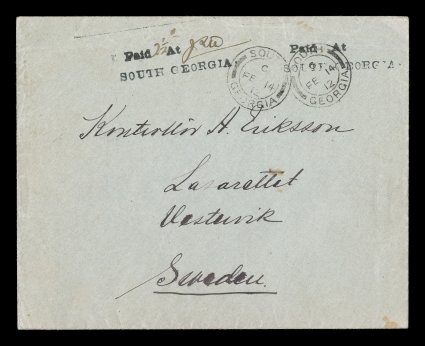 Paid At 2½ Paid At
SOUTH GEORGIA SOUTH GEORGIA
SOUTH GEORGIA
C
FE 14
12
SOUTH GEORGIA
C
FE 14
12
Kontrollör A. Eriksson
Lasarettet
Vestervik
Sweden.